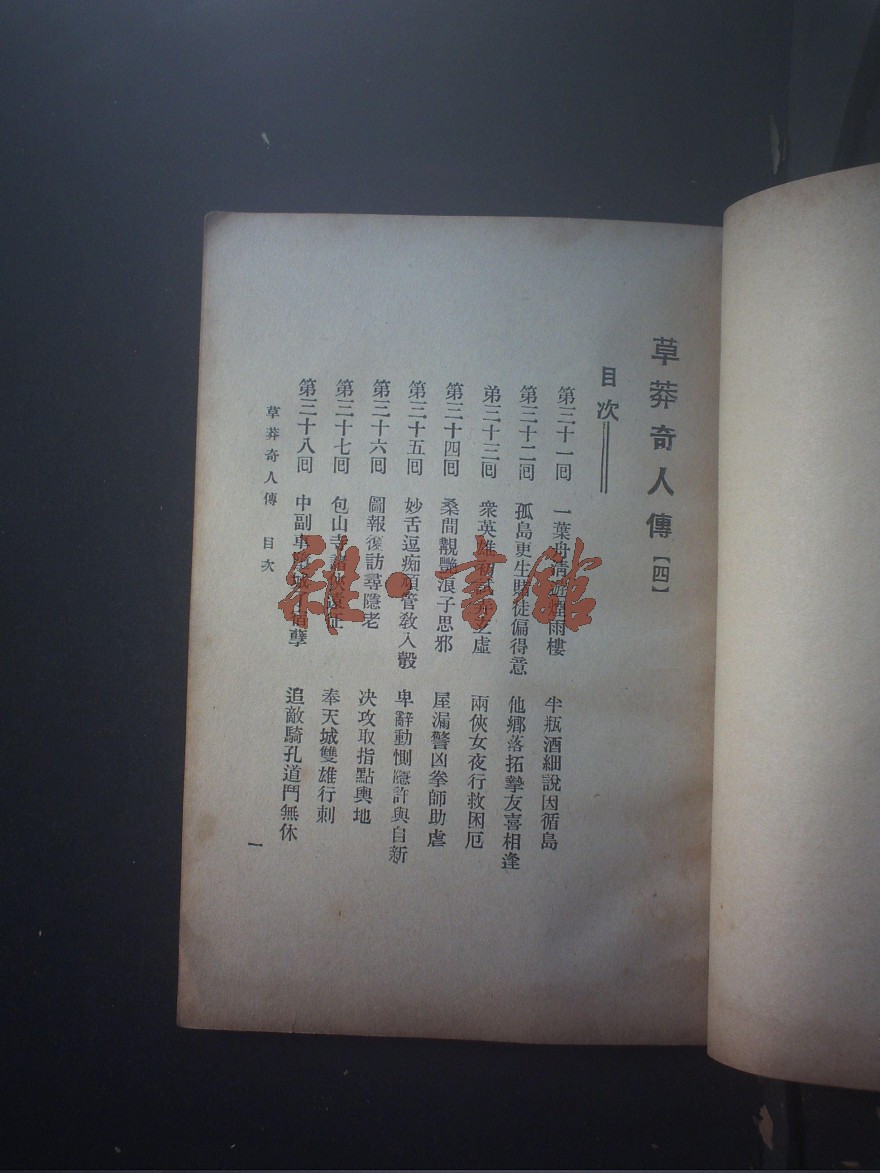 草莽奇人傳【四】
目次
第三十一回 一葉舟清遊煙雨樓 半瓶酒細說因循島
第三十二回 孤島更生賭徒偏得意 他鄉落拓摯友喜相逢
弟三十三回 衆英雄初試 虛 兩俠女夜行救困厄
第三十四回 桑間覩艷浪子思邪 屋漏警凶拳師助虐
第三十五回 妙舌逗痴頑管敎入彀 卑辭動惻隱許與自新
第三十六回 圖報復訪尋隱老 决攻取指點輿地
第三十七回 包山寺諸俠遠征 奉天城雙雄行刺
第三十八回 中副車 孽 追敵騎孔道鬥無休
草莽奇人傳 目次
一
雜·書館